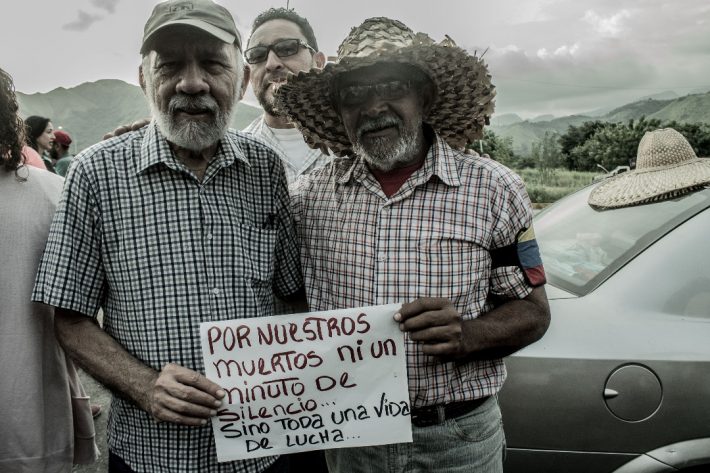 POR NUESTROS
MUERTOS NI UN
MINUTO DE
SILENCIO...
SINO TODA UNA VIDA
DE LUCHA...